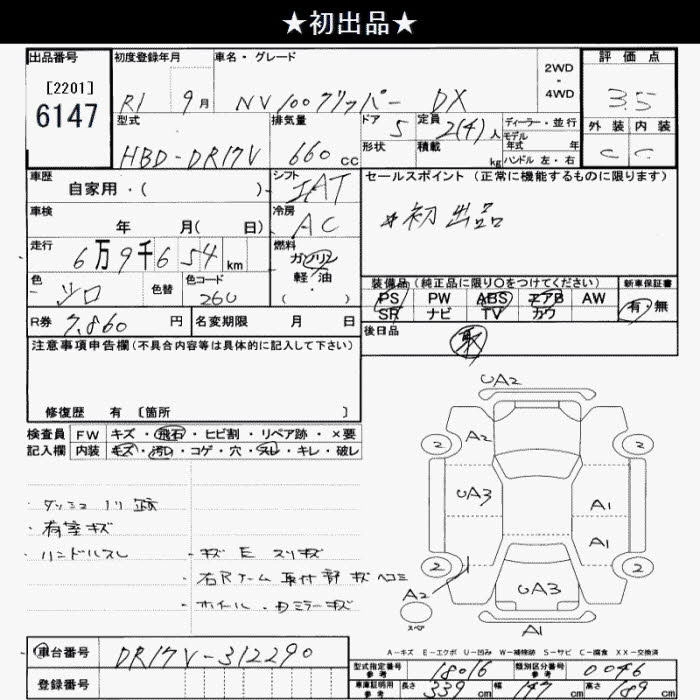 ★初出品★
出品番号 初度登録年月 車名・グレード 2WD・4WD 評価点
[2201]
6147
R1 9月 NV100クリッパー DX 3.5
型式 排気量 ドア 5 定員 2(4)人 ディーラー・並行 外装 内装
モデル年式 年
HBD-DR17V 660cc 形状 積載 kg ハンドル 左・右 C C
車歴 シフト セールスポイント(正常に機能するものに限ります)
自家用・( ) IAT
車検 冷房 初出品
年 月( 日) AC
走行 燃料
6万9千654km ガソリン
軽・油
( ・ )
色 色替 色コード 装備品(純正品に限り○をつけてください) 新車保証書
シロ 260 PS PW ABS エアB AW 有・無
SR ナビ TV カワ
R券 7,860円 名変期限 月 日 後日品
注意事項申告欄(不具合内容等は具体的に記入して下さい)
修復歴 有 [箇所 ]
検査員 FW キズ・飛石・ヒビ割・リペア跡・×要
記入欄 内装 キズ・汚れ・コゲ・穴・スレ・キレ・破レ
・ダッシュ ノリ跡
・荷室キズ
・ハンドルスレ
・キズ E スリキズ
・右Rアーム取付部 キズ ヘコミ
・ホイール・Dミラーキズ
UA2
2 A2 2
UA3 A1
A1
2 2
A2 UA3
スペア A1
A-キズ E-エクボ U-凹み W-補修跡 S-サビ C-腐食 XX-交換済
車台番号 DR17V-312290
登録番号
型式指定番号 参考 18016 類別区分番号 参考 0046
車庫証明用 参考 長さ 339cm 幅 147cm 高さ 189cm